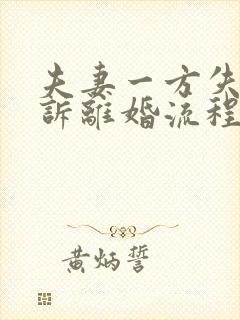 夫妻一方失
訴離婚流程
黄炳誓